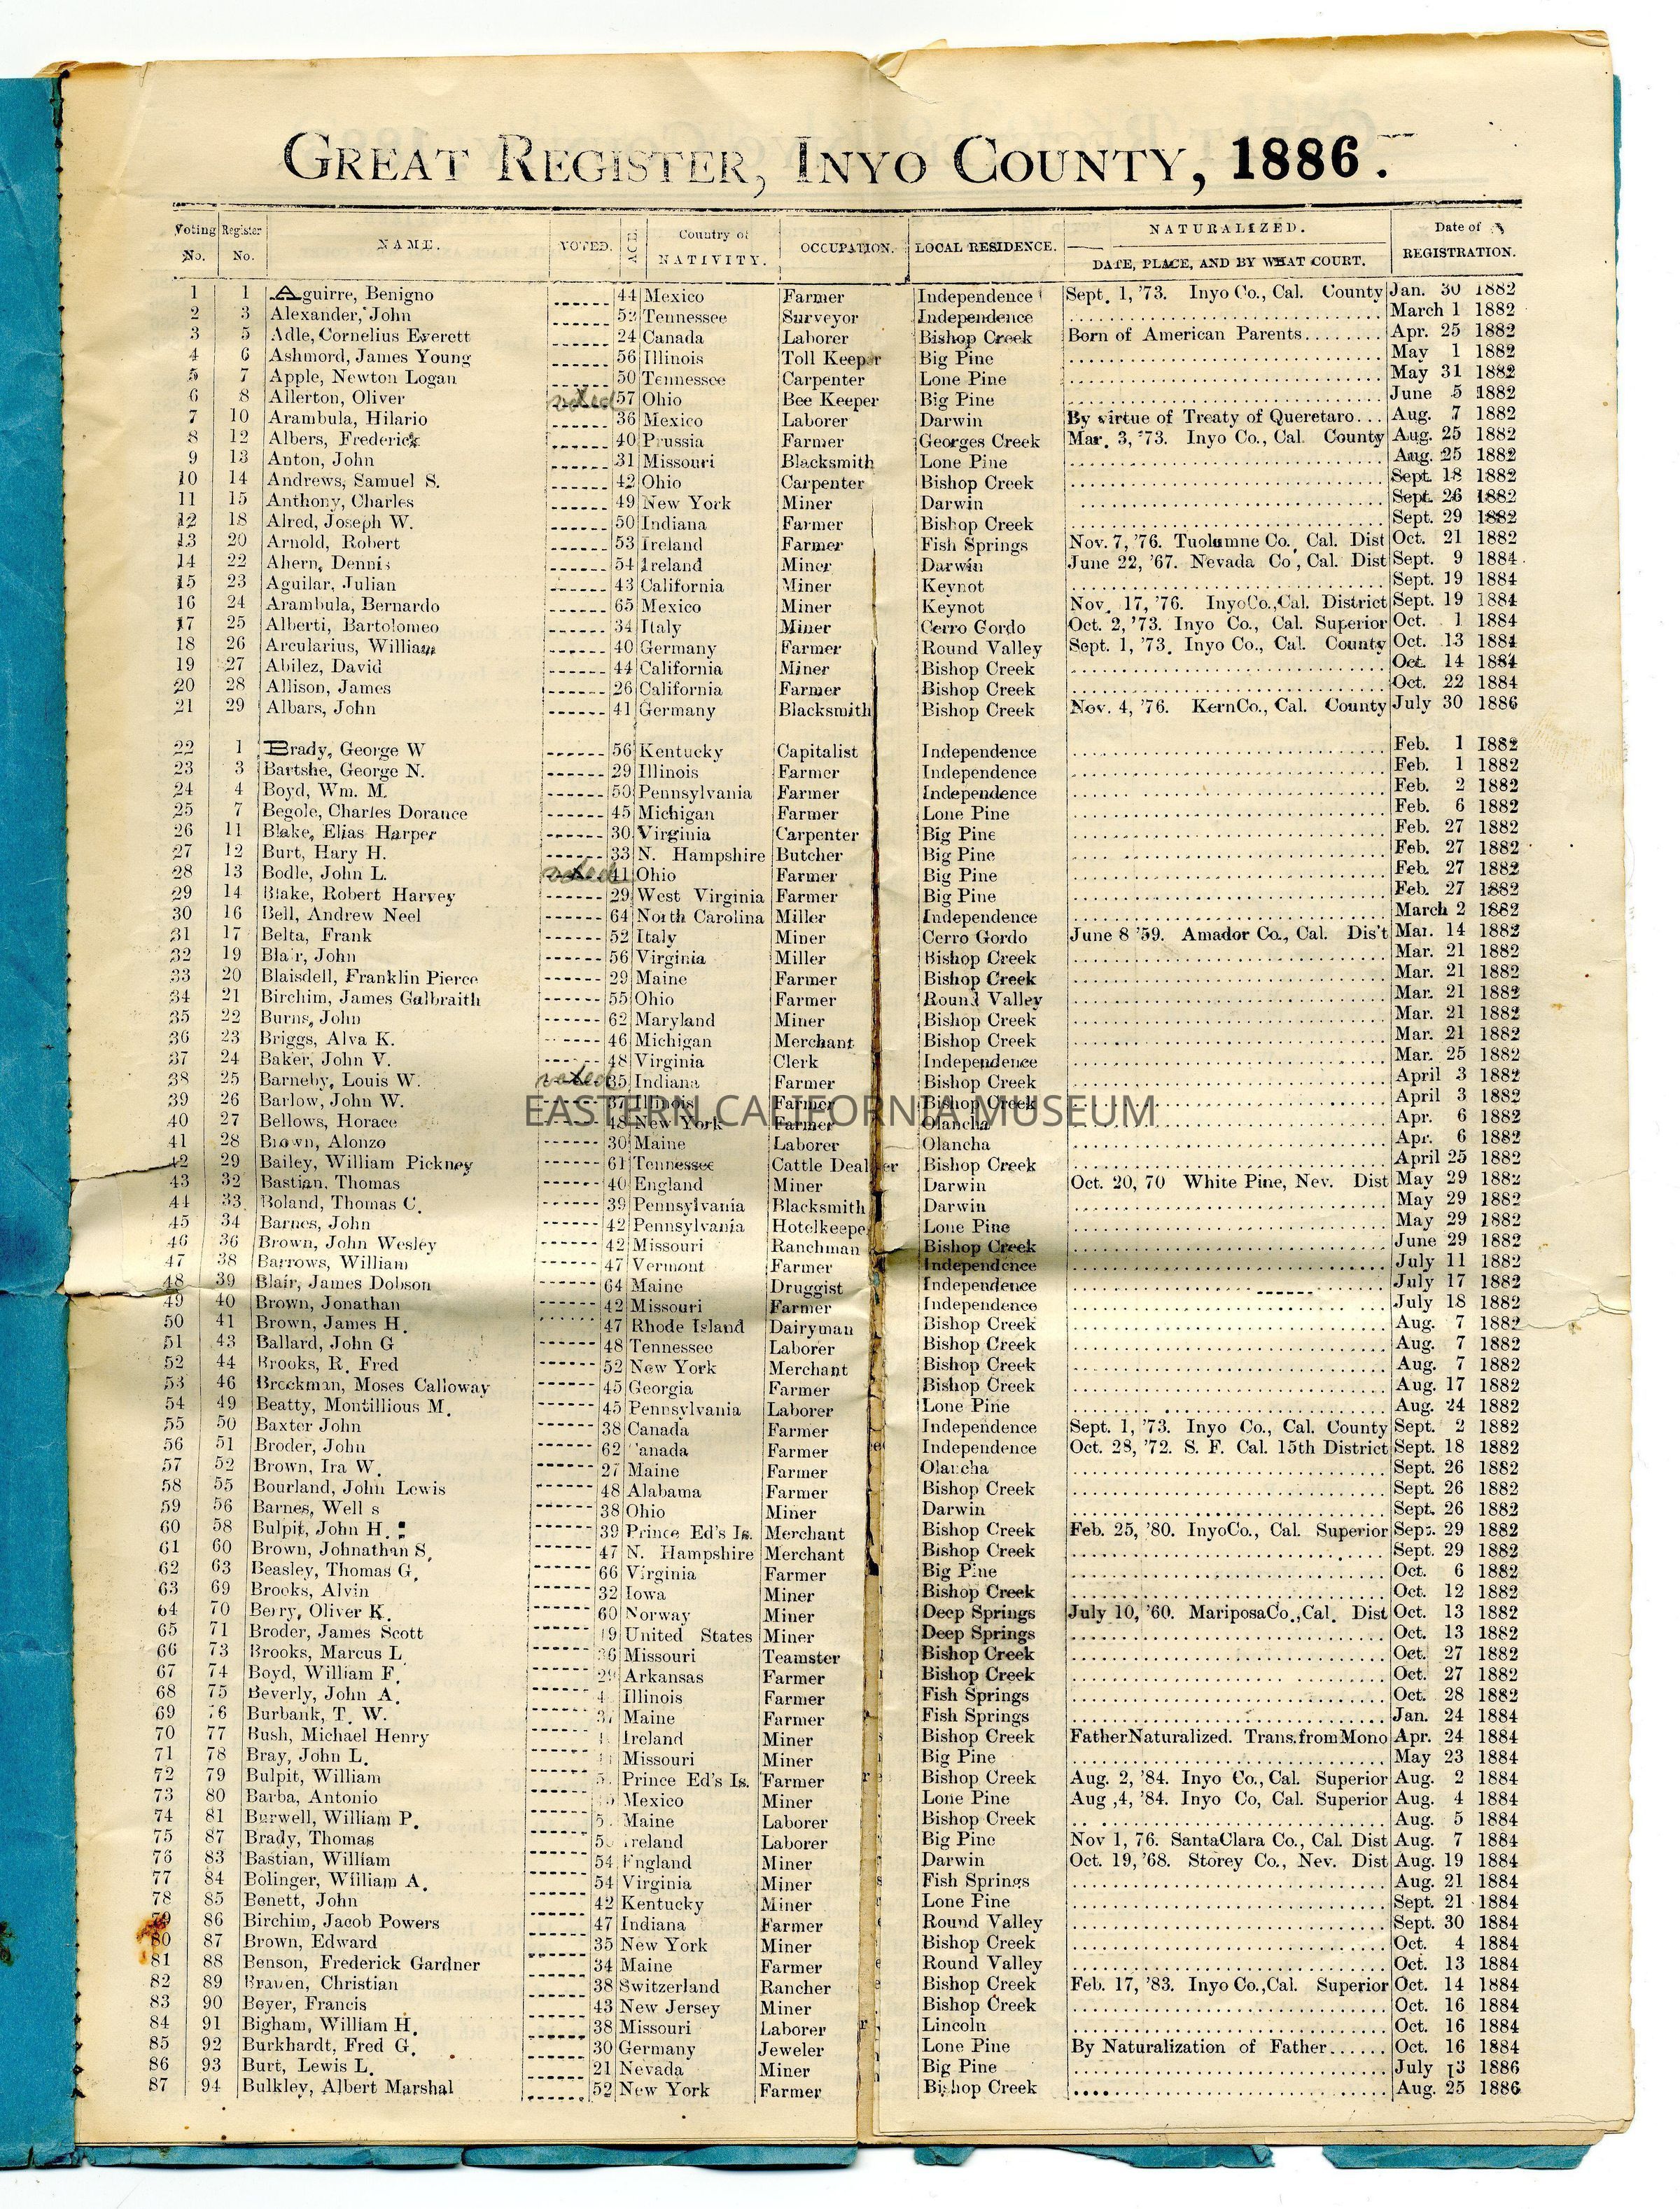 GREAT REGISTER, INYO COUNTY, 1886.
Voting No. Register No. NAME. VOTED. AGE Country of NATIVITY. OCCUPATION. LOCAL RESIDENCE. NATURALIZED. DATE, PLACE, AND BY WHAT COURT. Date of REGISTRATION.
1 1 Aguirre, Benigno 44 Mexico Farmer Independence Sept. 1, '73. Inyo Co., Cal. County Jan. 30 1882
2 3 Alexander, John 52 Tennessee Surveyor Independence March 1 1882
3 5 Adle, Cornelius Everett 24 Canada Laborer Bishop Creek Born of American Parents Apr. 25 1882
4 6 Ashmord, James Young 56 Illinois Toll Keeper Big Pine May 1 1882
5 7 Apple, Newton Logan 50 Tennessee Carpenter Lone Pine May 31 1882
6 8 Allerton, Oliver voted 57 Ohio Bee Keeper Big Pine June 5 1882
7 10 Arambula, Hilario 36 Mexico Laborer Darwin By virtue of Treaty of Queretaro Aug. 7 1882
8 12 Albers, Frederick 40 Prussia Farmer Georges Creek Mar. 3, '73. Inyo Co., Cal. County Aug. 25 1882
9 13 Anton, John 31 Missouri Blacksmith Lone Pine Aug. 25 1882
10 14 Andrews, Samuel S. 42 Ohio Carpenter Bishop Creek Sept. 18 1882
11 15 Anthony, Charles 49 New York Miner Darwin Sept. 26 1882
12 18 Alred, Joseph W. 50 Indiana Farmer Bishop Creek Sept. 29 1882
13 20 Arnold, Robert 53 Ireland Farmer Fish Springs Nov. 7, '76. Tuolumne Co., Cal. Dist Oct. 21 1882
14 22 Ahern, Dennis 54 Ireland Miner Darwin June 22, '67. Nevada Co, Cal. Dist Sept. 9 1884
15 23 Aguilar, Julian 43 California Miner Keynot Sept. 19 1884
16 24 Arambula, Bernardo 65 Mexico Miner Keynot Nov. 17, '76. Inyo Co., Cal. District Sept. 19 1884
17 25 Alberti, Bartolomeo 34 Italy Miner Cerro Gordo Oct. 2, '73. Inyo Co., Cal. Superior Oct. 1 1884
18 26 Arcularius, William 40 Germany Farmer Round Valley Sept. 1, '73. Inyo Co., Cal. County Oct. 13 1884
19 27 Abilez, David 44 California Miner Bishop Creek Oct. 14 1884
20 28 Allison, James 26 California Farmer Bishop Creek Oct. 22 1884
21 29 Albars, John 41 Germany Blacksmith Bishop Creek Nov. 4, '76. Kern Co., Cal. County July 30 1886
22 1 Brady, George W 56 Kentucky Capitalist Independence Feb. 1 1882
23 3 Bartshe, George N. 29 Illinois Farmer Independence Feb. 1 1882
24 4 Boyd, Wm. M. 50 Pennsylvania Farmer Independence Feb. 2 1882
25 7 Begole, Charles Dorance 45 Michigan Farmer Lone Pine Feb. 6 1882
26 11 Blake, Elias Harper 30 Virginia Carpenter Big Pine Feb. 27 1882
27 12 Burt, Hary H. 33 N. Hampshire Butcher Big Pine Feb. 27 1882
28 13 Bodle, John L. voted 41 Ohio Farmer Big Pine Feb. 27 1882
29 14 Blake, Robert Harvey 29 West Virginia Farmer Big Pine Feb. 27 1882
30 16 Bell, Andrew Neel 64 North Carolina Miller Independence March 2 1882
31 17 Belta, Frank 52 Italy Miner Cerro Gordo June 8 '59. Amador Co., Cal. Dis't Mar. 14 1882
32 19 Blair, John 56 Virginia Miller Bishop Creek Mar. 21 1882
33 20 Blaisdell, Franklin Pierce 29 Maine Farmer Bishop Creek Mar. 21 1882
34 21 Birchim, James Galbraith 55 Ohio Farmer Round Valley Mar. 21 1882
35 22 Burns, John 62 Maryland Miner Bishop Creek Mar. 21 1882
36 23 Briggs, Alva K. 46 Michigan Merchant Bishop Creek Mar. 21 1882
37 24 Baker, John V. 48 Virginia Clerk Independence Mar. 25 1882
38 25 Barneby, Louis W. voted 35 Indiana Farmer Bishop Creek April 3 1882
39 26 Barlow, John W. 37 Illinois Farmer Bishop Creek April 3 1882
EASTERN CALIFORNIA MUSEUM
40 27 Bellows, Horace 48 New York Farmer Olancha Apr. 6 1882
41 28 Brown, Alonzo 30 Maine Laborer Olancha Apr. 6 1882
42 29 Bailey, William Pickney 61 Tennessee Cattle Dealer Bishop Creek April 25 1882
43 32 Bastian, Thomas 40 England Miner Darwin Oct. 20, 70 White Pine, Nev. Dist May 29 1882
44 33 Boland, Thomas C. 39 Pennsylvania Blacksmith Darwin May 29 1882
45 34 Barnes, John 42 Pennsylvania Hotelkeeper Lone Pine May 29 1882
46 36 Brown, John Wesley 42 Missouri Ranchman Bishop Creek June 29 1882
47 38 Barrows, William 47 Vermont Farmer Independence July 11 1882
48 39 Blair, James Dobson 64 Maine Druggist Independence July 17 1882
49 40 Brown, Jonathan 42 Missouri Farmer Independence July 18 1882
50 41 Brown, James H. 47 Rhode Island Dairyman Bishop Creek Aug. 7 1882
51 43 Ballard, John G 48 Tennessee Laborer Bishop Creek Aug. 7 1882
52 44 Brooks, R. Fred 52 New York Merchant Bishop Creek Aug. 7 1882
53 46 Breckman, Moses Calloway 45 Georgia Farmer Bishop Creek Aug. 17 1882
54 49 Beatty, Montillious M. 45 Pennsylvania Laborer Lone Pine Aug. 24 1882
55 50 Baxter John 38 Canada Farmer Independence Sept. 1, '73. Inyo Co., Cal. County Sept. 2 1882
56 51 Broder, John 62 anada Farmer Independence Oct. 28, '72. S. F. Cal. 15th District Sept. 18 1882
57 52 Brown, Ira W. 27 Maine Farmer Olancha Sept. 26 1882
58 55 Bourland, John Lewis 48 Alabama Farmer Bishop Creek Sept. 26 1882
59 56 Barnes, Well s 38 Ohio Miner Darwin Sept. 26 1882
60 58 Bulpit, John H. 39 Prince Ed's Is. Merchant Bishop Creek Feb. 25, '80. Inyo Co., Cal. Superior Sept. 29 1882
61 60 Brown, Johnathan S. 47 N. Hampshire Merchant Bishop Creek Sept. 29 1882
62 63 Beasley, Thomas G. 66 Virginia Farmer Big Pine Oct. 6 1882
63 69 Brooks, Alvin 32 Iowa Miner Bishop Creek Oct. 12 1882
64 70 Berry, Oliver K. 60 Norway Miner Deep Springs July 10, '60. Mariposa Co., Cal. Dist Oct. 13 1882
65 71 Broder, James Scott 19 United States Miner Deep Springs Oct. 13 1882
66 73 Brooks, Marcus L 36 Missouri Teamster Bishop Creek Oct. 27 1882
67 74 Boyd, William F. 29 Arkansas Farmer Bishop Creek Oct. 27 1882
68 75 Beverly, John A. Illinois Farmer Fish Springs Oct. 28 1882
69 76 Burbank, T. W. Maine Farmer Fish Springs Jan. 24 1884
70 77 Bush, Michael Henry Ireland Miner Bishop Creek Father Naturalized. Trans. from Mono Apr. 24 1884
71 78 Bray, John L. Missouri Miner Big Pine May 23 1884
72 79 Bulpit, William Prince Ed's Is. Farmer Bishop Creek Aug. 2, '84. Inyo Co., Cal. Superior Aug. 2 1884
73 80 Barba, Antonio Mexico Miner Lone Pine Aug ,4, '84. Inyo Co, Cal. Superior Aug. 4 1884
74 81 Burwell, William P. Maine Laborer Bishop Creek Aug. 5 1884
75 87 Brady, Thomas Ireland Laborer Big Pine Nov 1, 76. Santa Clara Co., Cal. Dist Aug. 7 1884
76 83 Bastian, William 54 England Miner Darwin Oct. 19, '68. Storey Co., Nev. Dist Aug. 19 1884
77 84 Bolinger, William A. 54 Virginia Miner Fish Springs Aug. 21 1884
78 85 Benett, John 42 Kentucky Miner Lone Pine Sept. 21 1884
79 86 Birchim, Jacob Powers 47 Indiana Farmer Round Valley Sept. 30 1884
80 87 Brown, Edward 35 New York Miner Bishop Creek Oct. 4 1884
81 88 Benson, Frederick Gardner 34 Maine Farmer Round Valley Oct. 13 1884
82 89 Brauen, Christian 38 Switzerland Rancher Bishop Creek Feb. 17, '83. Inyo Co., Cal. Superior Oct. 14 1884
83 90 Beyer, Francis 43 New Jersey Miner Bishop Creek Oct. 16 1884
84 91 Bigham, William H. 38 Missouri Laborer Lincoln Oct. 16 1884
85 92 Burkhardt, Fred G. 30 Germany Jeweler Lone Pine By Naturalization of Father Oct. 16 1884
86 93 Burt, Lewis L. 21 Nevada Miner Big Pine July 13 1886
87 94 Bulkley, Albert Marshal 52 New York Farmer Bishop Creek Aug. 25 1886